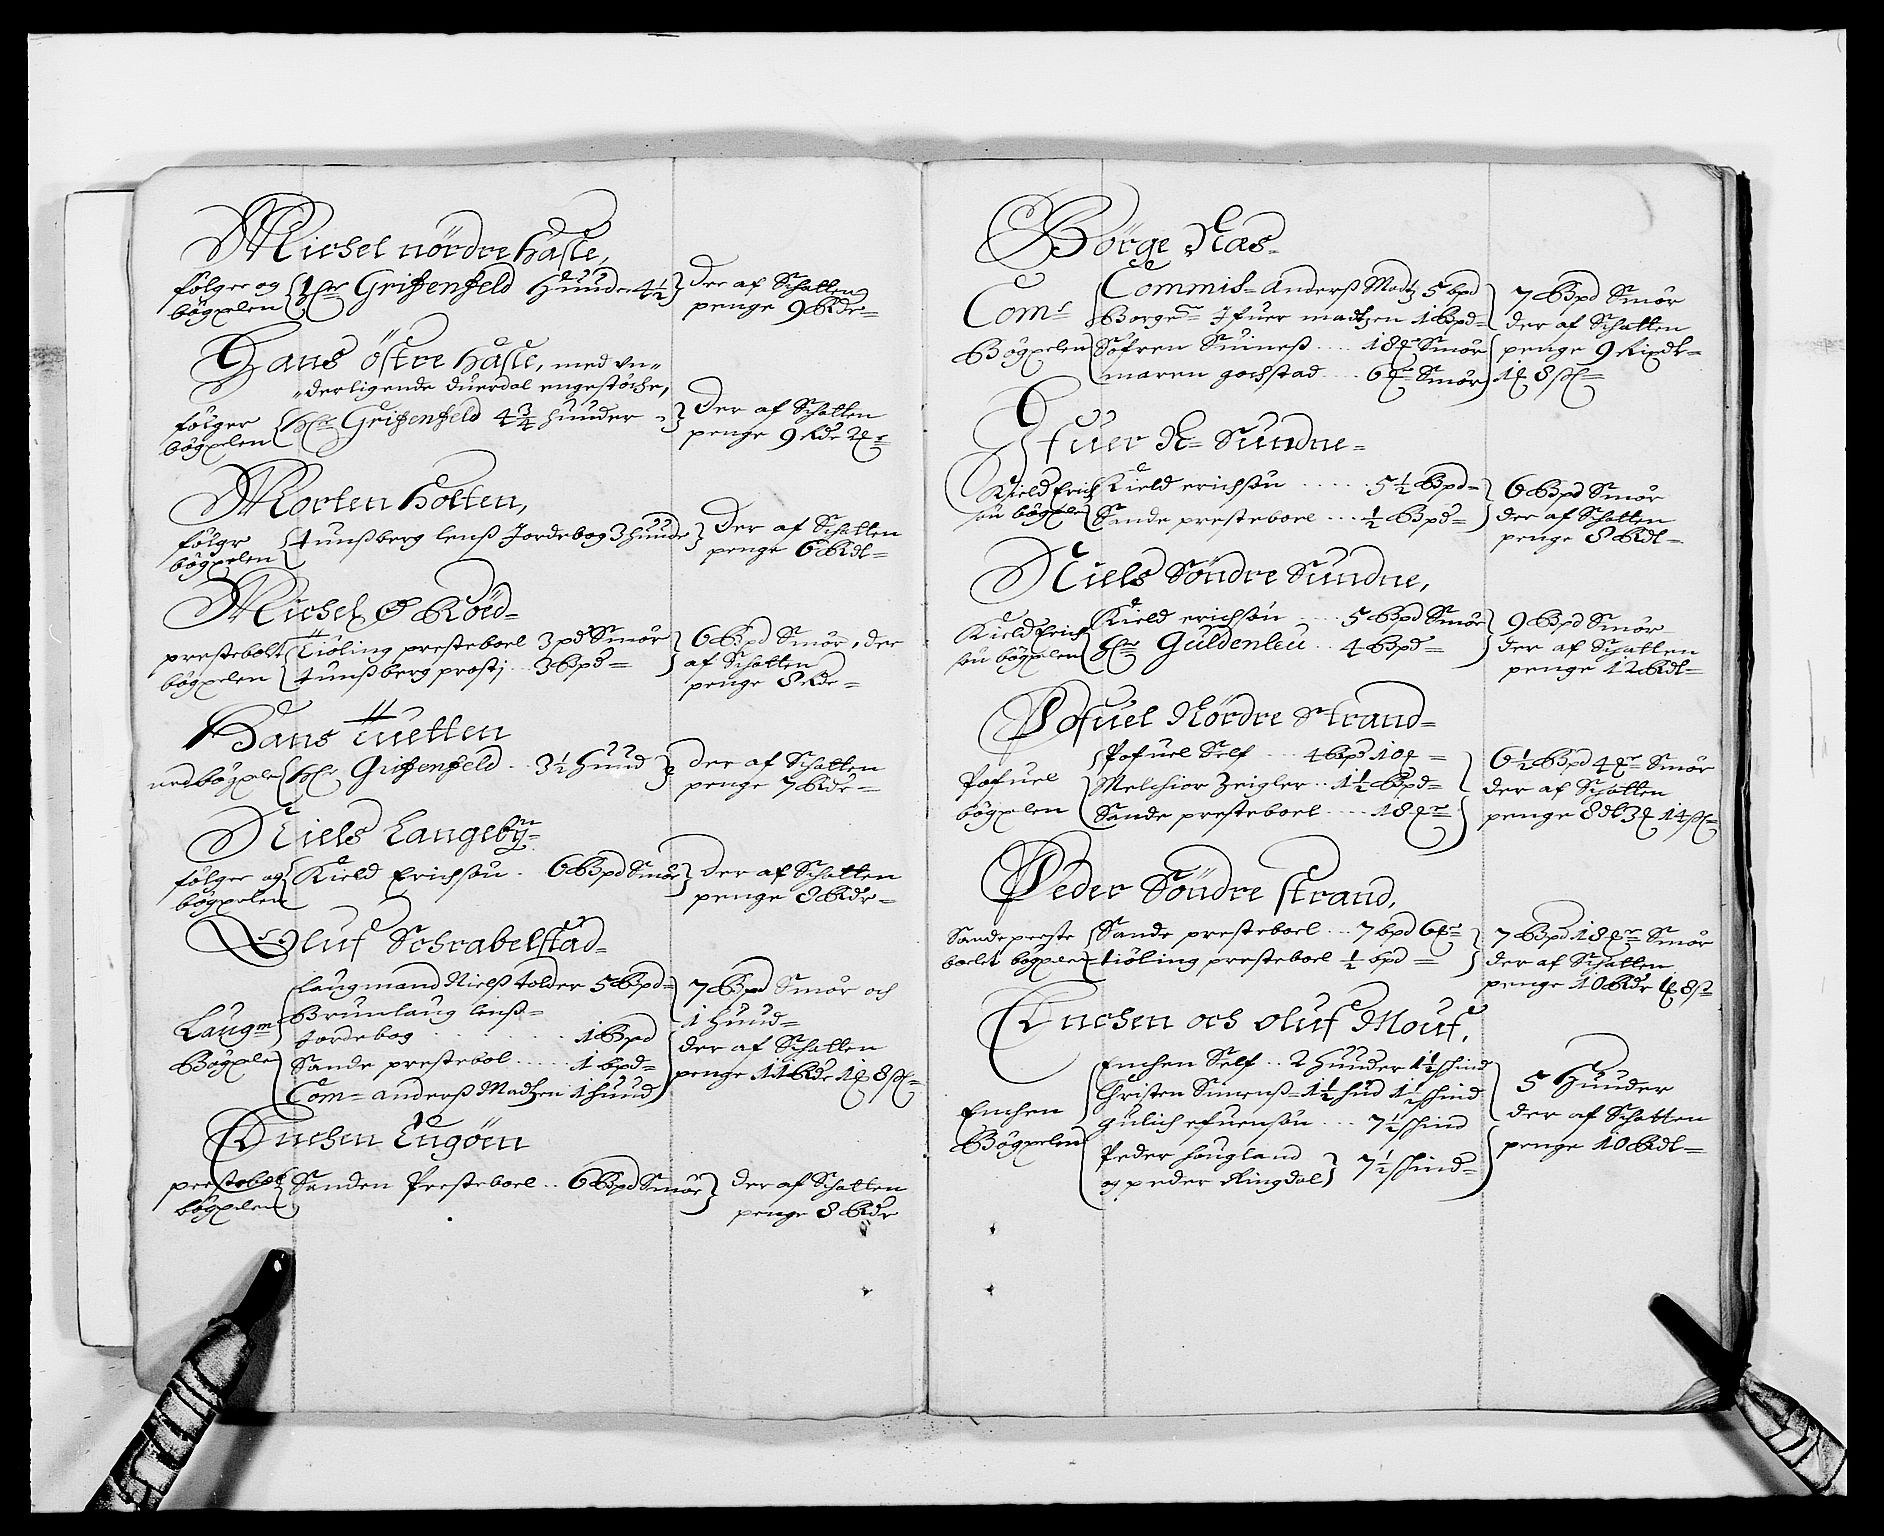 Michel nördre Hasle,
følger og
bögxelen
hr Griffenfeld Huuder 4½
Der af Schatten
penge 9 Rdr=
Hans östre Hasle, med vn=
=derligende duerdal engestöche,
følger
bögxelen
hr Griffenfeld 4¾ huuder
Der af Schatten
penge 9 Rdr
Morten Holten,
följer
bögxelen
tunßberg lenß Jordebog 3 huude
Der af Schatten
penge 6 Rdl=
Michel Ø Röed=
prestebolt
bögxelen
tiöling presteboel 3 pd Smör
tunßberg prostj .. 3 Bpd=
6 Bpd Smör, der
af Schatten
penge 8 Rdr=
Hans Tuetten
bögxelen
hr Griffenfeld .. 3½ Huud
der af Schatten
penge 7 Rdr=
Niels Langebÿ=
følger og
bögxelen
Kield Erichsøn . 6 Bpd Smör
Der af Schatten
penge 8 Rdr=
Oluf Schrabelstad=
Laugm
Bögxelen
Laugmand Nielß tolder 5 Bpd=
Brunlaug lenß=
Jordebog ... 1 Bpd
Sande prestebol ..... 1 bpd=
Com= anderß Madtzen 1 huud
7 Bpd Smör och
1 huud=
der af Schatten
penge 11 Rdr
Enchen Engöen
prestebolt
bögxelen
Sanden Presteboel .. 6 Bpd Smör
der af Schatten
penge 8 Rdr
Börge Næs=
Comß
Bögxelen
Commis= Anderß Madtz 5 bpd
Borger Ifuer madtzen 1 Bpd=
Söfren Suineß .... 18 Smör
maren gochstad ... 6 Smör
7 Bpd Smör
der af Schatten
penge 9 Rixdl=
Ifuer N= Sundne=
Kield Erich
sön bögxelen
Kield erichsön ...... 5½ Bpd=
Sande presteboel ... ½ Bpd=
6 Bpd Smör
der af Schatten
penge 8 Rdl=
Niels Söndre Sundne,
Kield Erich
sön bögxelen
Kield erichsön .... 5 Bpd Smör
hr Güldenleü .. 4 Bpd=
9 Bpd Smör
der af Schatten
penge 12 Rdl=
Pofuel Nördre Strand=
Pofuel
bögxelen
Pofuel Self ... 4 bpd 10 =
Melchior Zeigler .. 1½ Bpd=
Sande presteboel .... 18
6½ Bpd 4 Smör
der af Schatten
penge 8 dl 3 14
Peder Söndre strand,
Sande preste
boelet bögxelen
Sande presteboel ... 7 bpd 6
tiöling presteboel ½ bpd =
7 Bpd 18 Smör
der af Schatten
penge 10 Rdr
Enchen och oluf Mouf,
Enchen
Bögxelen
Enchen Self .. 2 Huuder 1½ schind
Christen Simenß= 1½ hud 1½ schind
gulich efuensön ... 7½ schind
Peder haugland
og peder Ringdal
7½ schind=
5 Huuder
der af Schatten
penge 10 Rdl=